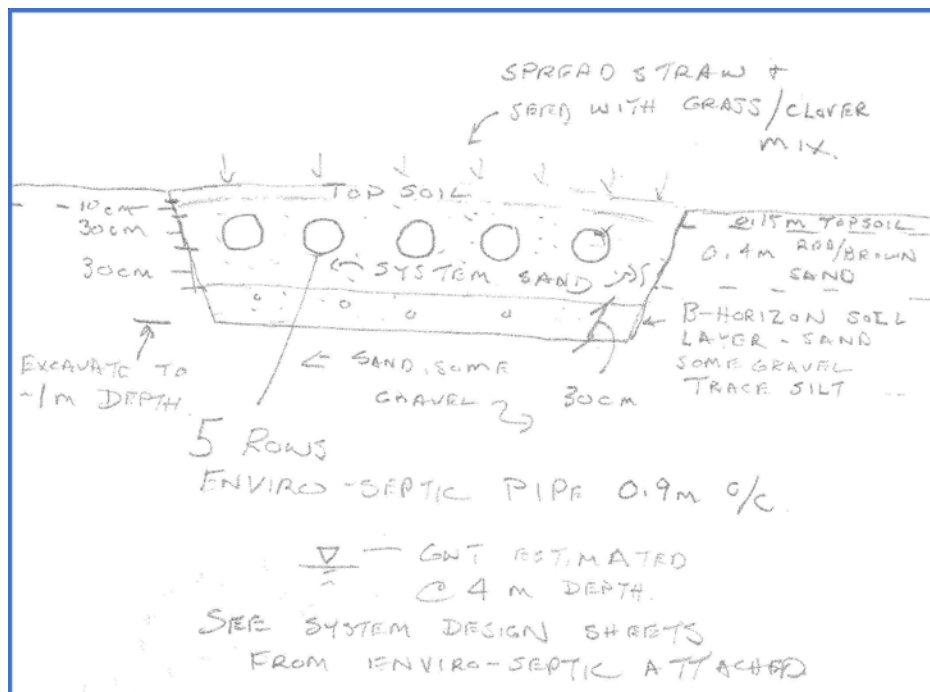 SPREAD STRAW +
SEED WITH GRASS/CLOVER
MIX.
TOP SOIL
10cm
30cm
30cm
SYSTEM SAND
0.15m TOPSOIL
0.4m RED/BROWN
SAND
B-HORIZON SOIL
LAYER - SAND
SOME GRAVEL
TRACE SILT
EXCAVATE TO
~1m DEPTH
SAND, SOME
GRAVEL
30cm
5 ROWS
ENVIRO-SEPTIC PIPE 0.9m o/c
GWT ESTIMATED
@ 4 m DEPTH.
SEE SYSTEM DESIGN SHEETS
FROM ENVIRO-SEPTIC ATTACHED